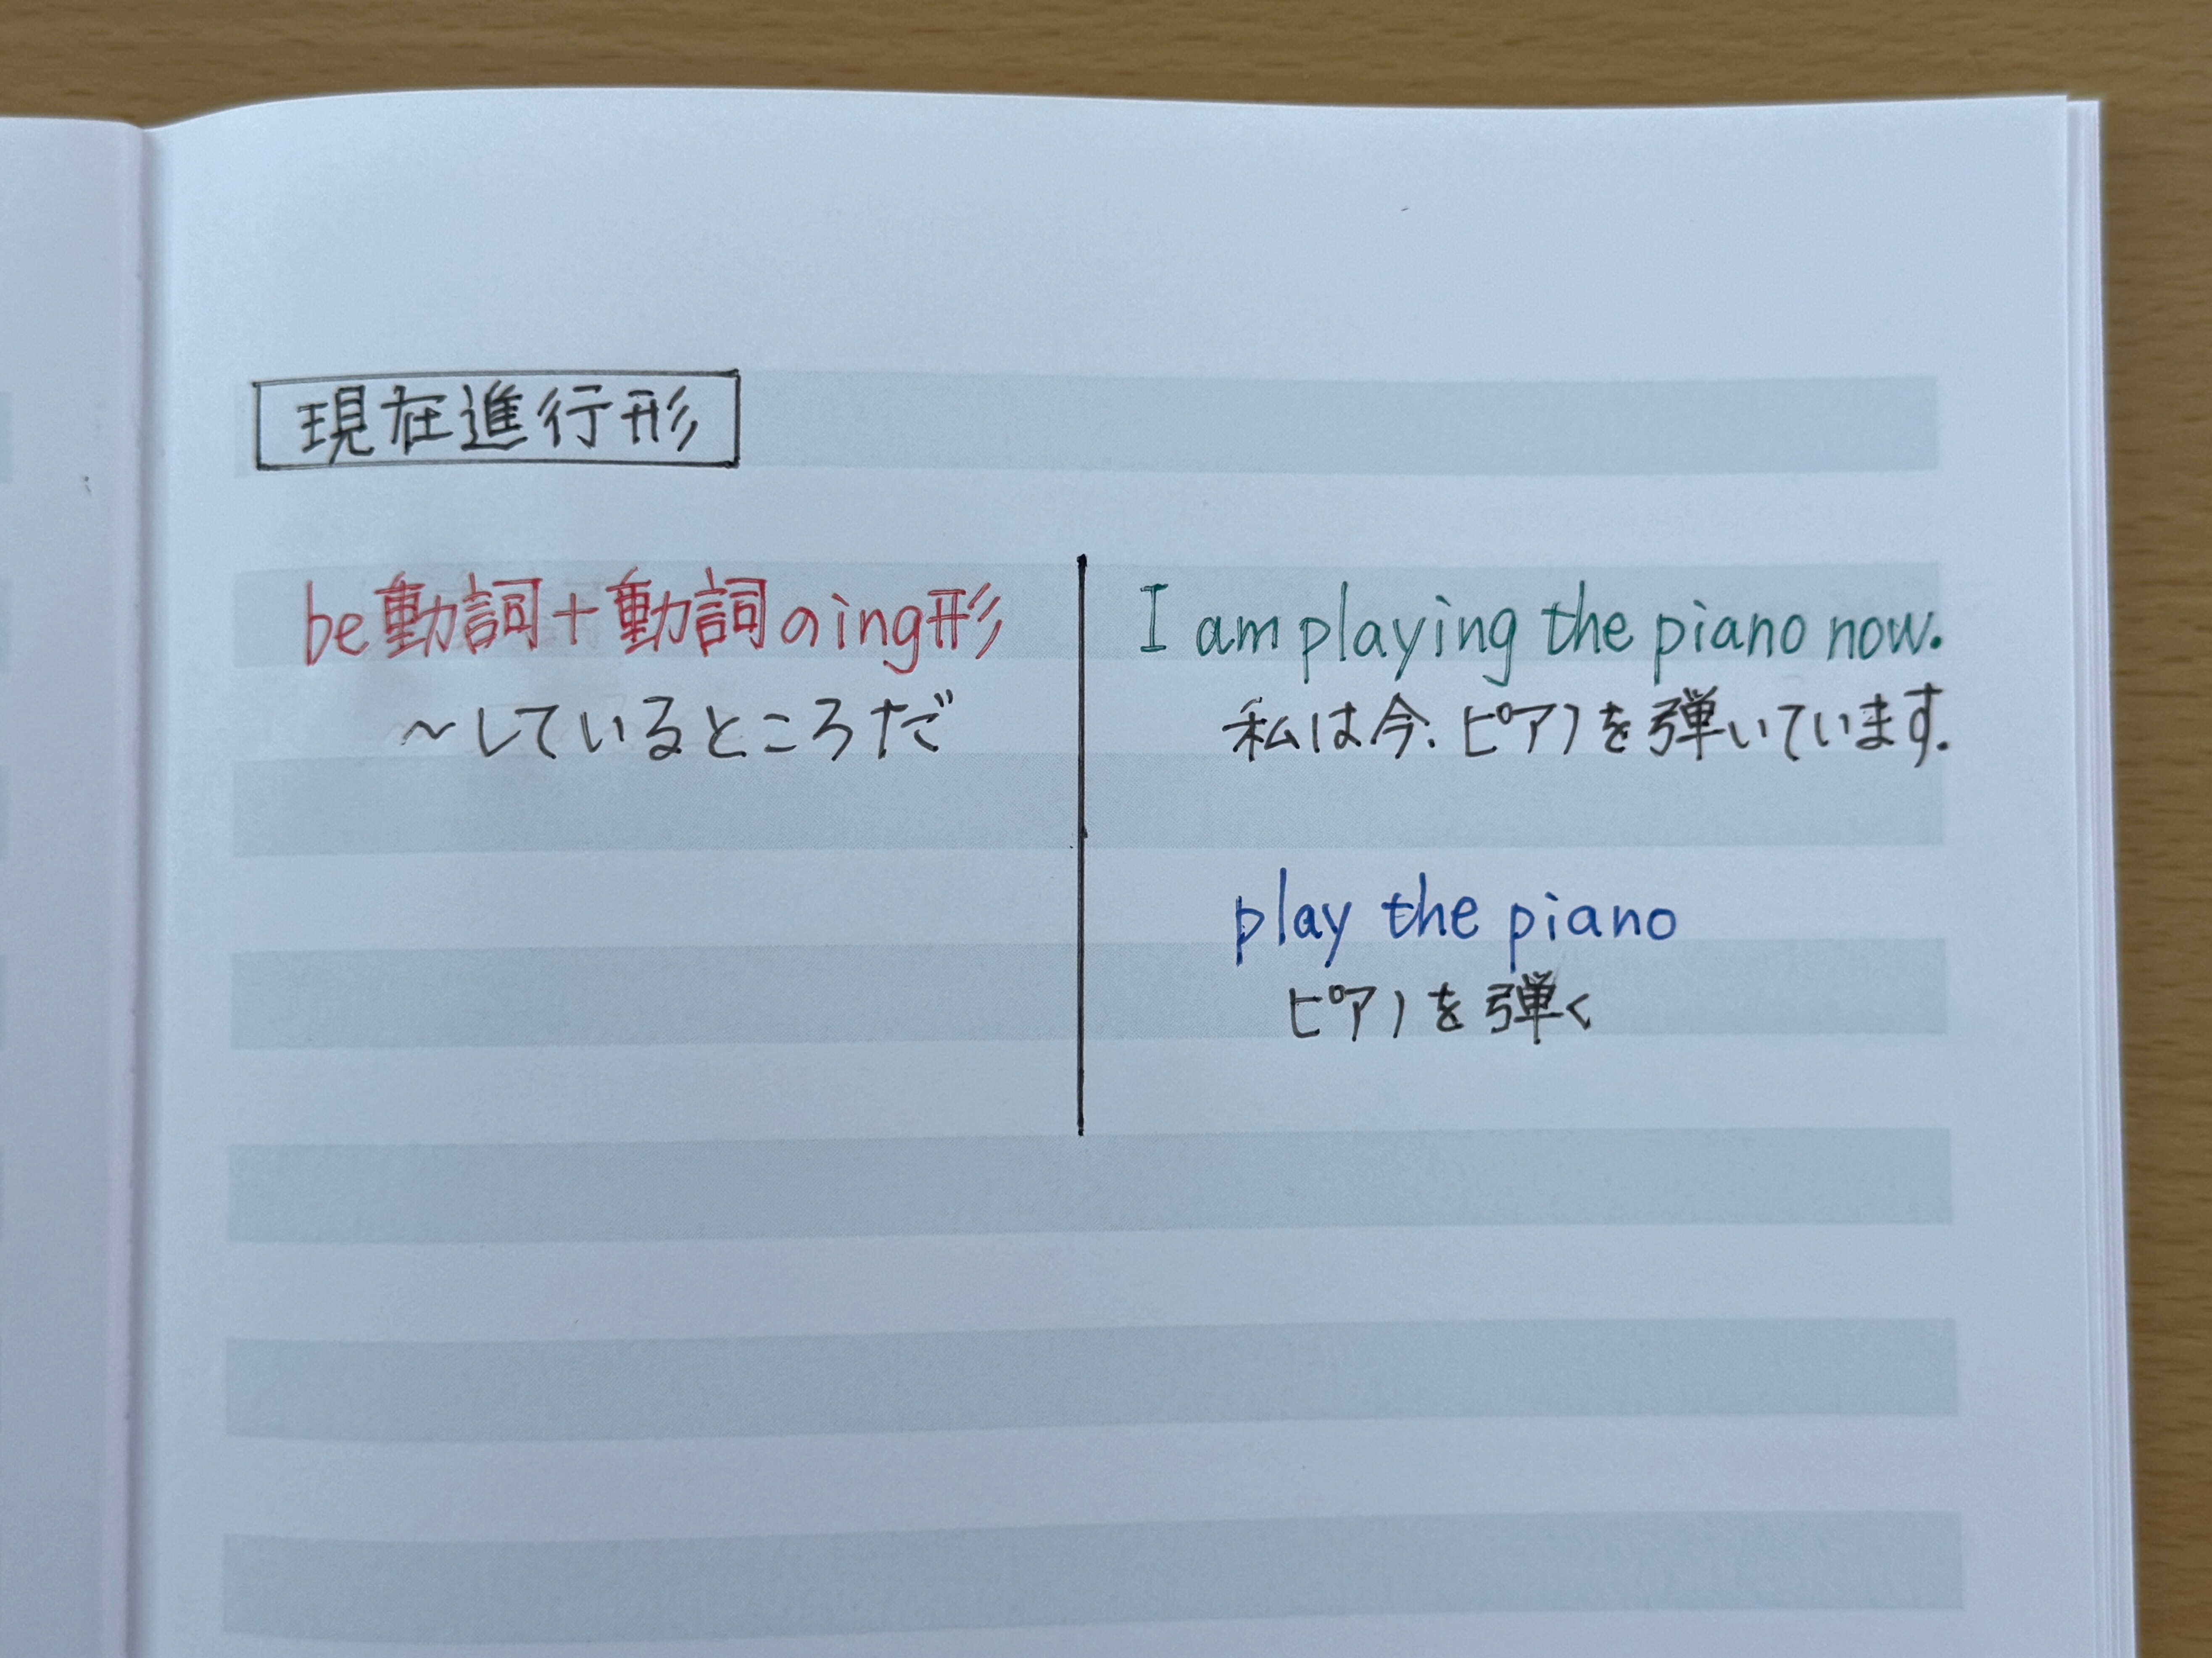 現在進行形
be動詞+動詞のing形
~しているところだ
I am playing the piano now.
私は今、ピアノを弾いています.
play the piano
ピアノを弾く